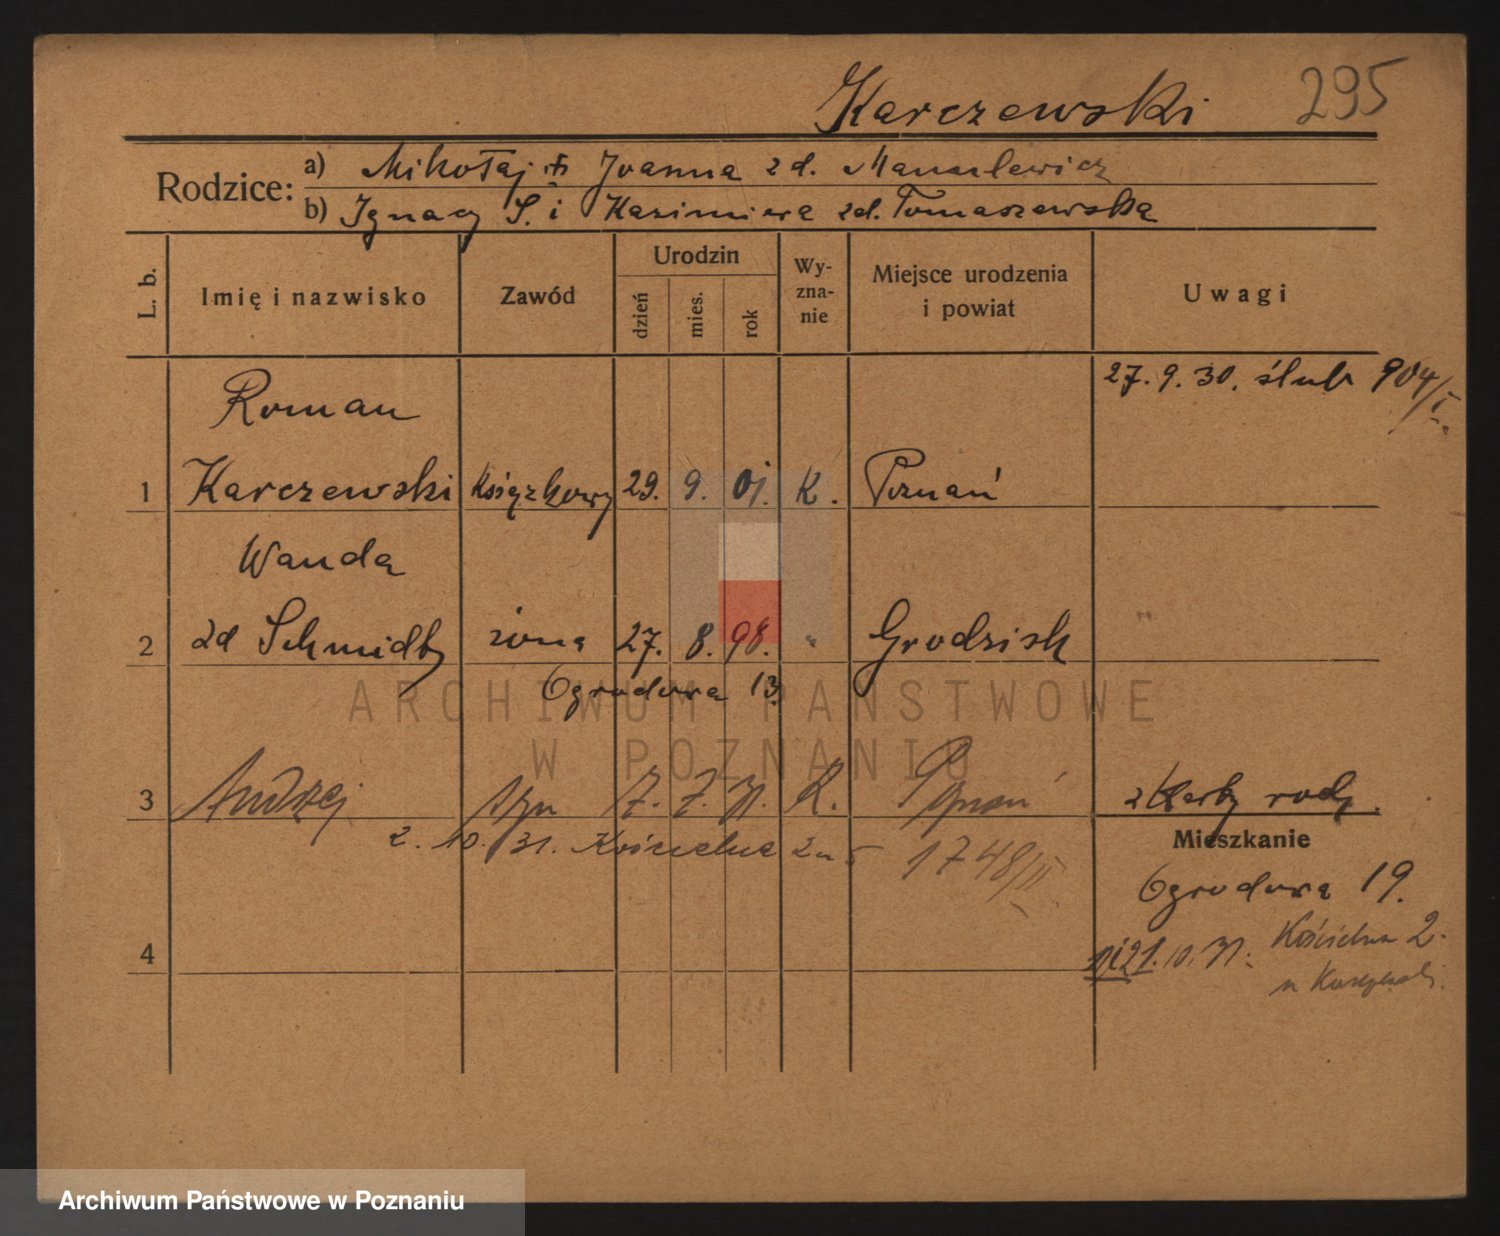 Karczewski 295
Rodzice:
a) Mikołaj i Joanna zd. Manulewicz
b) Ignacy S. i Kazimiera zd. Tomaszewska
L. b.
Imię i nazwisko
Zawód
Urodzin
dzień
mies.
rok
Wy-
zna-
nie
Miejsce urodzenia
i powiat
Uwagi
27. 9. 30. ślub 904/I
Roman
1 Karczewski Książkowy 29. 9. 01. K. Poznań
Wanda
2 zd Schmidt żona 27. 8. 98. " Grodzisk "
Ogrodowa 13
ARCHIWUM PAŃSTWOWE
W POZNANIU
3 Andrzej syn 7. 7. 31. K. Poznań z Karty rodz.
2. 10. 31. Kościelna 2 1748/II
Mieszkanie
Ogrodowa 19.
4
21. 10. 31. Kościelna 2.
Archiwum Państwowe w Poznaniu